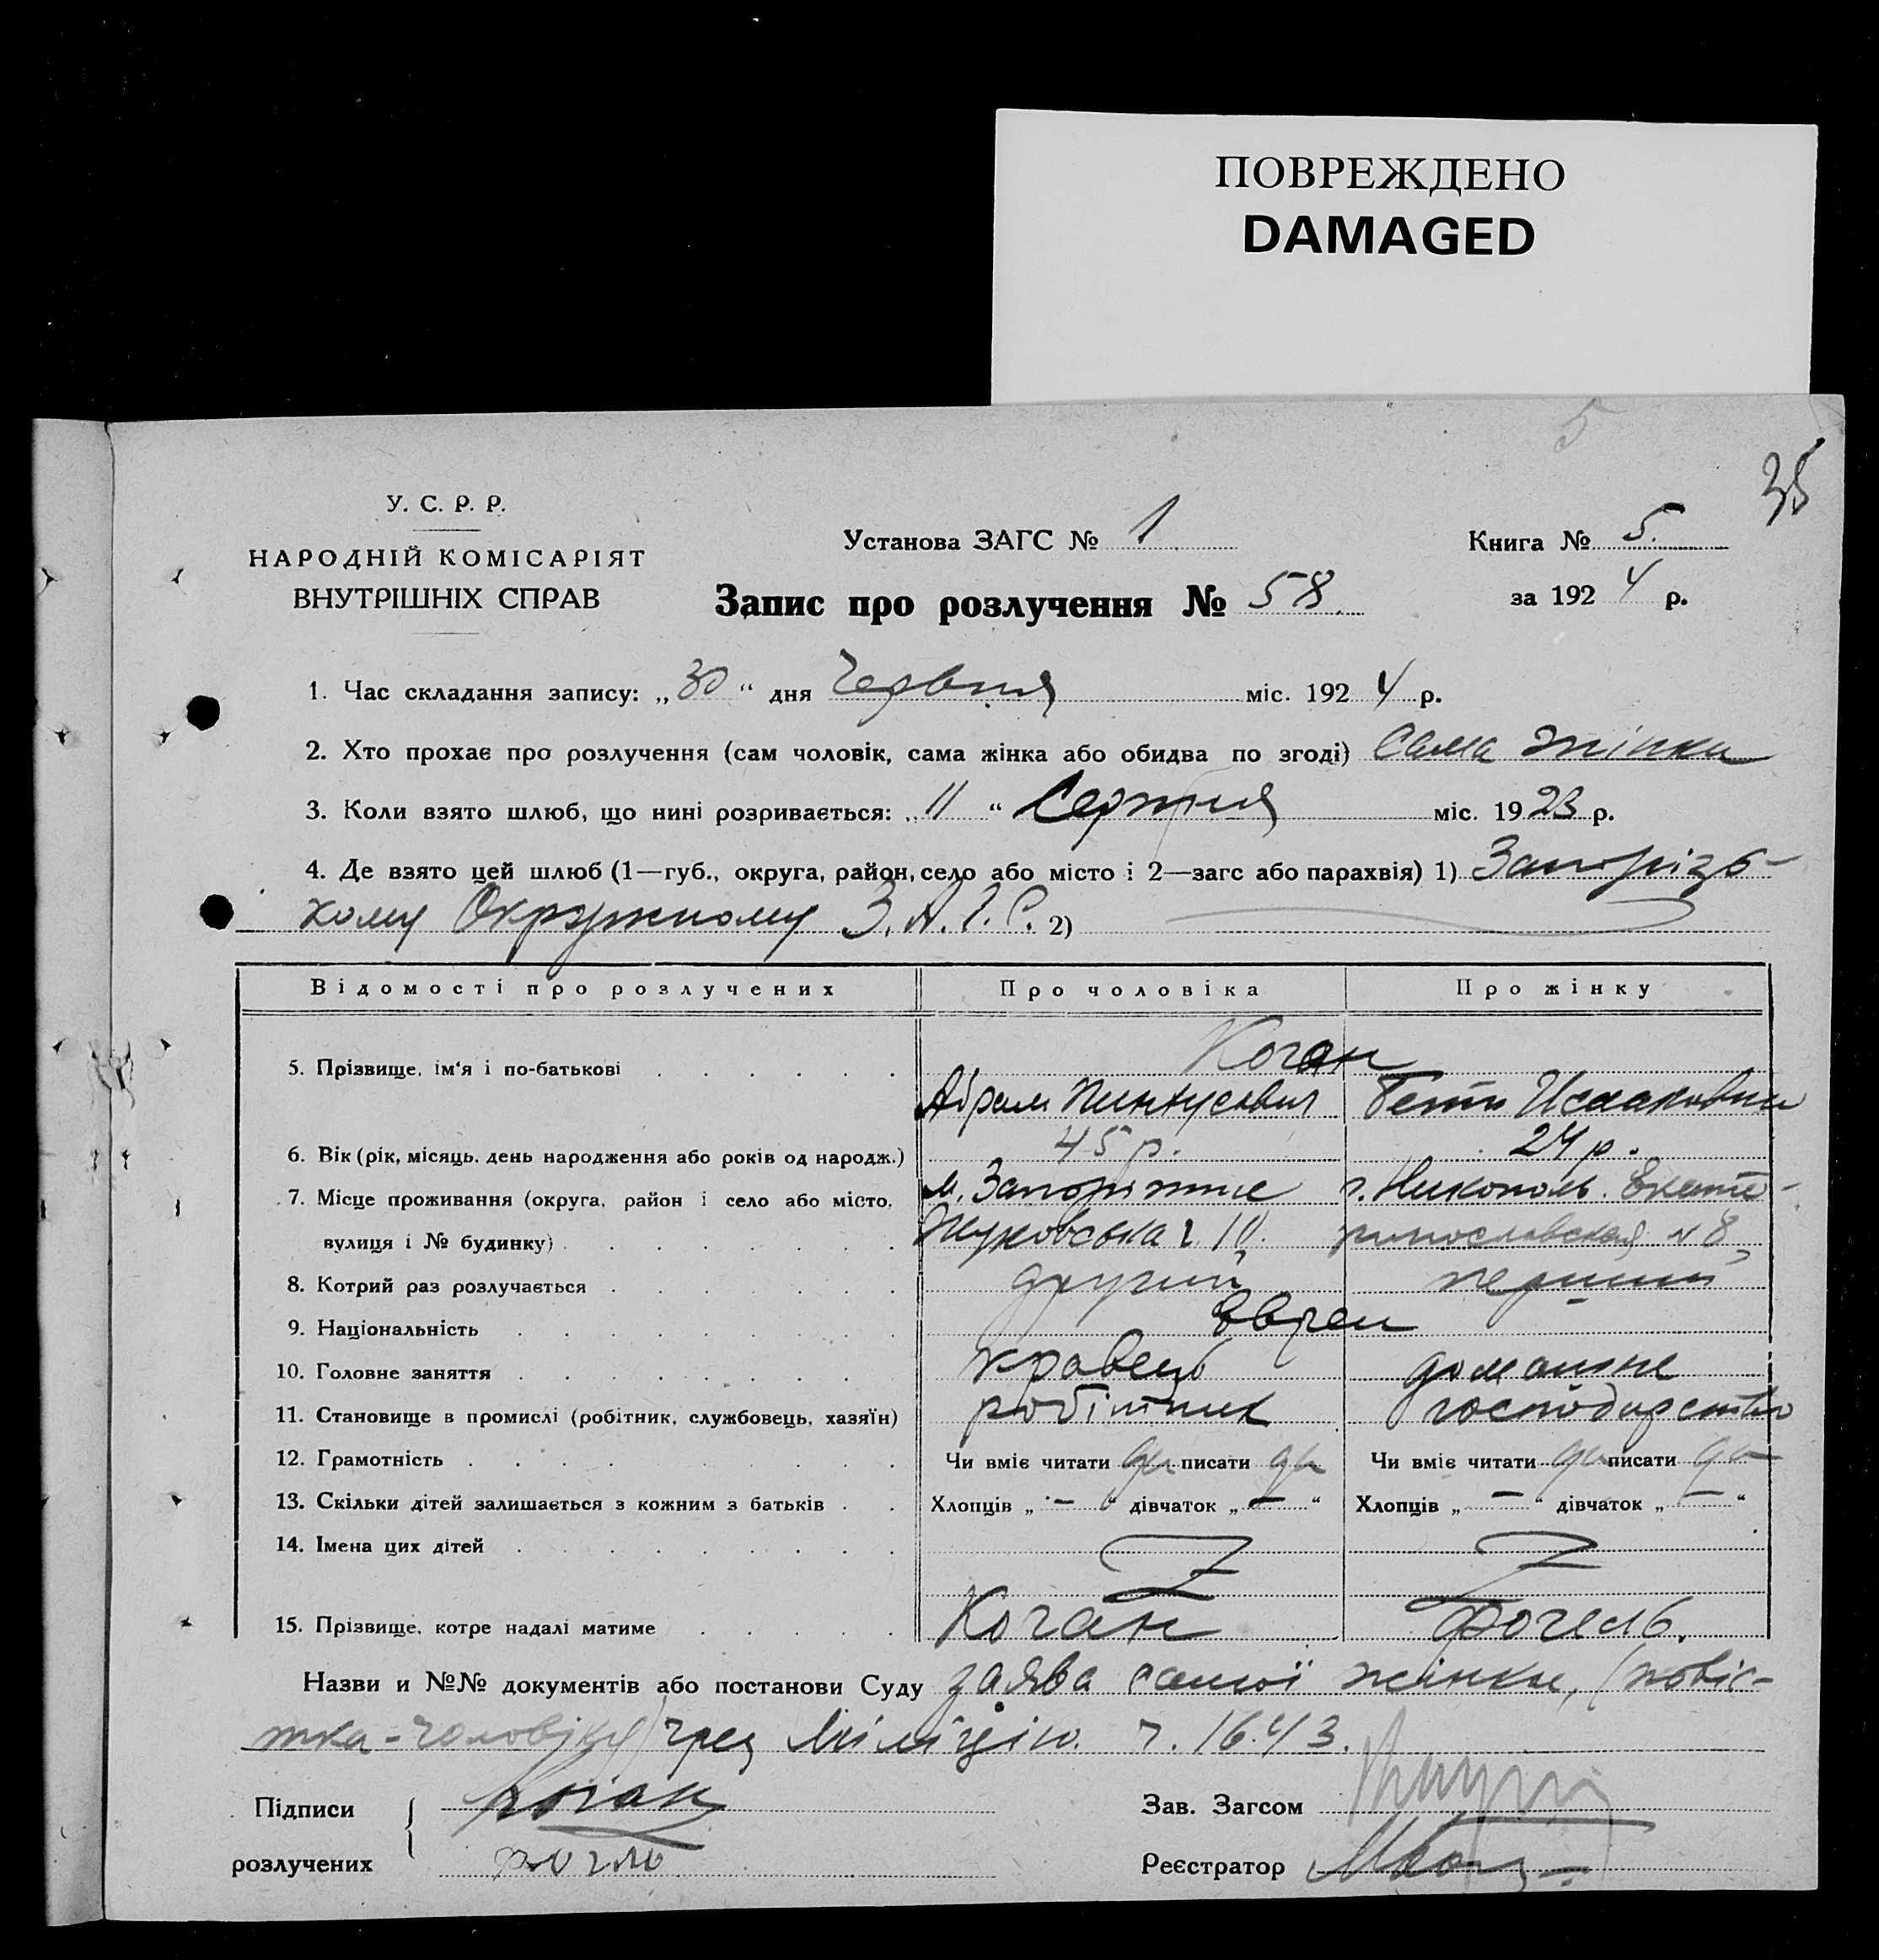 ПОВРЕЖДЕНО
DAMAGED
5
35
У. С. Р. Р.
НАРОДНІЙ КОМІСАРІЯТ
ВНУТРІШНІХ СПРАВ
Установа ЗАГС № 1
Книга № 5.
за 192 4 р.
Запис про розлучення № 58.
1. Час складання запису: „30“ дня Червня міс. 192 4 р.
2. Хто прохає про розлучення (сам чоловік, сама жінка або обидва по згоді) Сама жінка
3. Коли взято шлюб, що нині розривається: „11“ Серпня міс. 1923 р.
4. Де взято цей шлюб (1—губ., округа, район, село або місто і 2—загс або парахвія) 1) Запорізь-
кому Окружному З.А.Г.С. 2)
Відомості про розлучених Про чоловіка Про жінку
Коган
5. Прізвище, ім'я і по-батькові
Абрам Пинхусович Бетя Исааковна
6. Вік (рік, місяць, день народження або років од народж.) 45 р. 24 р.
7. Місце проживання (округа, район і село або місто, м. Запоріжжє г. Никополь. Екате-
вулиця і № будинку) Жуковська 10. ринославская № 8
8. Котрий раз розлучається другий перший
9. Національність Евреи
10. Головне заняття кравець домашне
11. Становище в промислі (робітник, службовець, хазяїн) робітник господарство
12. Грамотність Чи вміє читати да писати да Чи вміє читати да писати да
13. Скільки дітей залишається з кожним з батьків Хлопців „—“ дівчаток „—“ Хлопців „—“ дівчаток „—“
14. Імена цих дітей
15. Прізвище, котре надалі матиме Коган Фогель.
Назви и №№ документів або постанови Суду заява самої жінки, (повіс-
тка-чоловіку) чрез Міліцію. ч. 1643.
Підписи Коган Зав. Загсом
розлучених Реєстратор